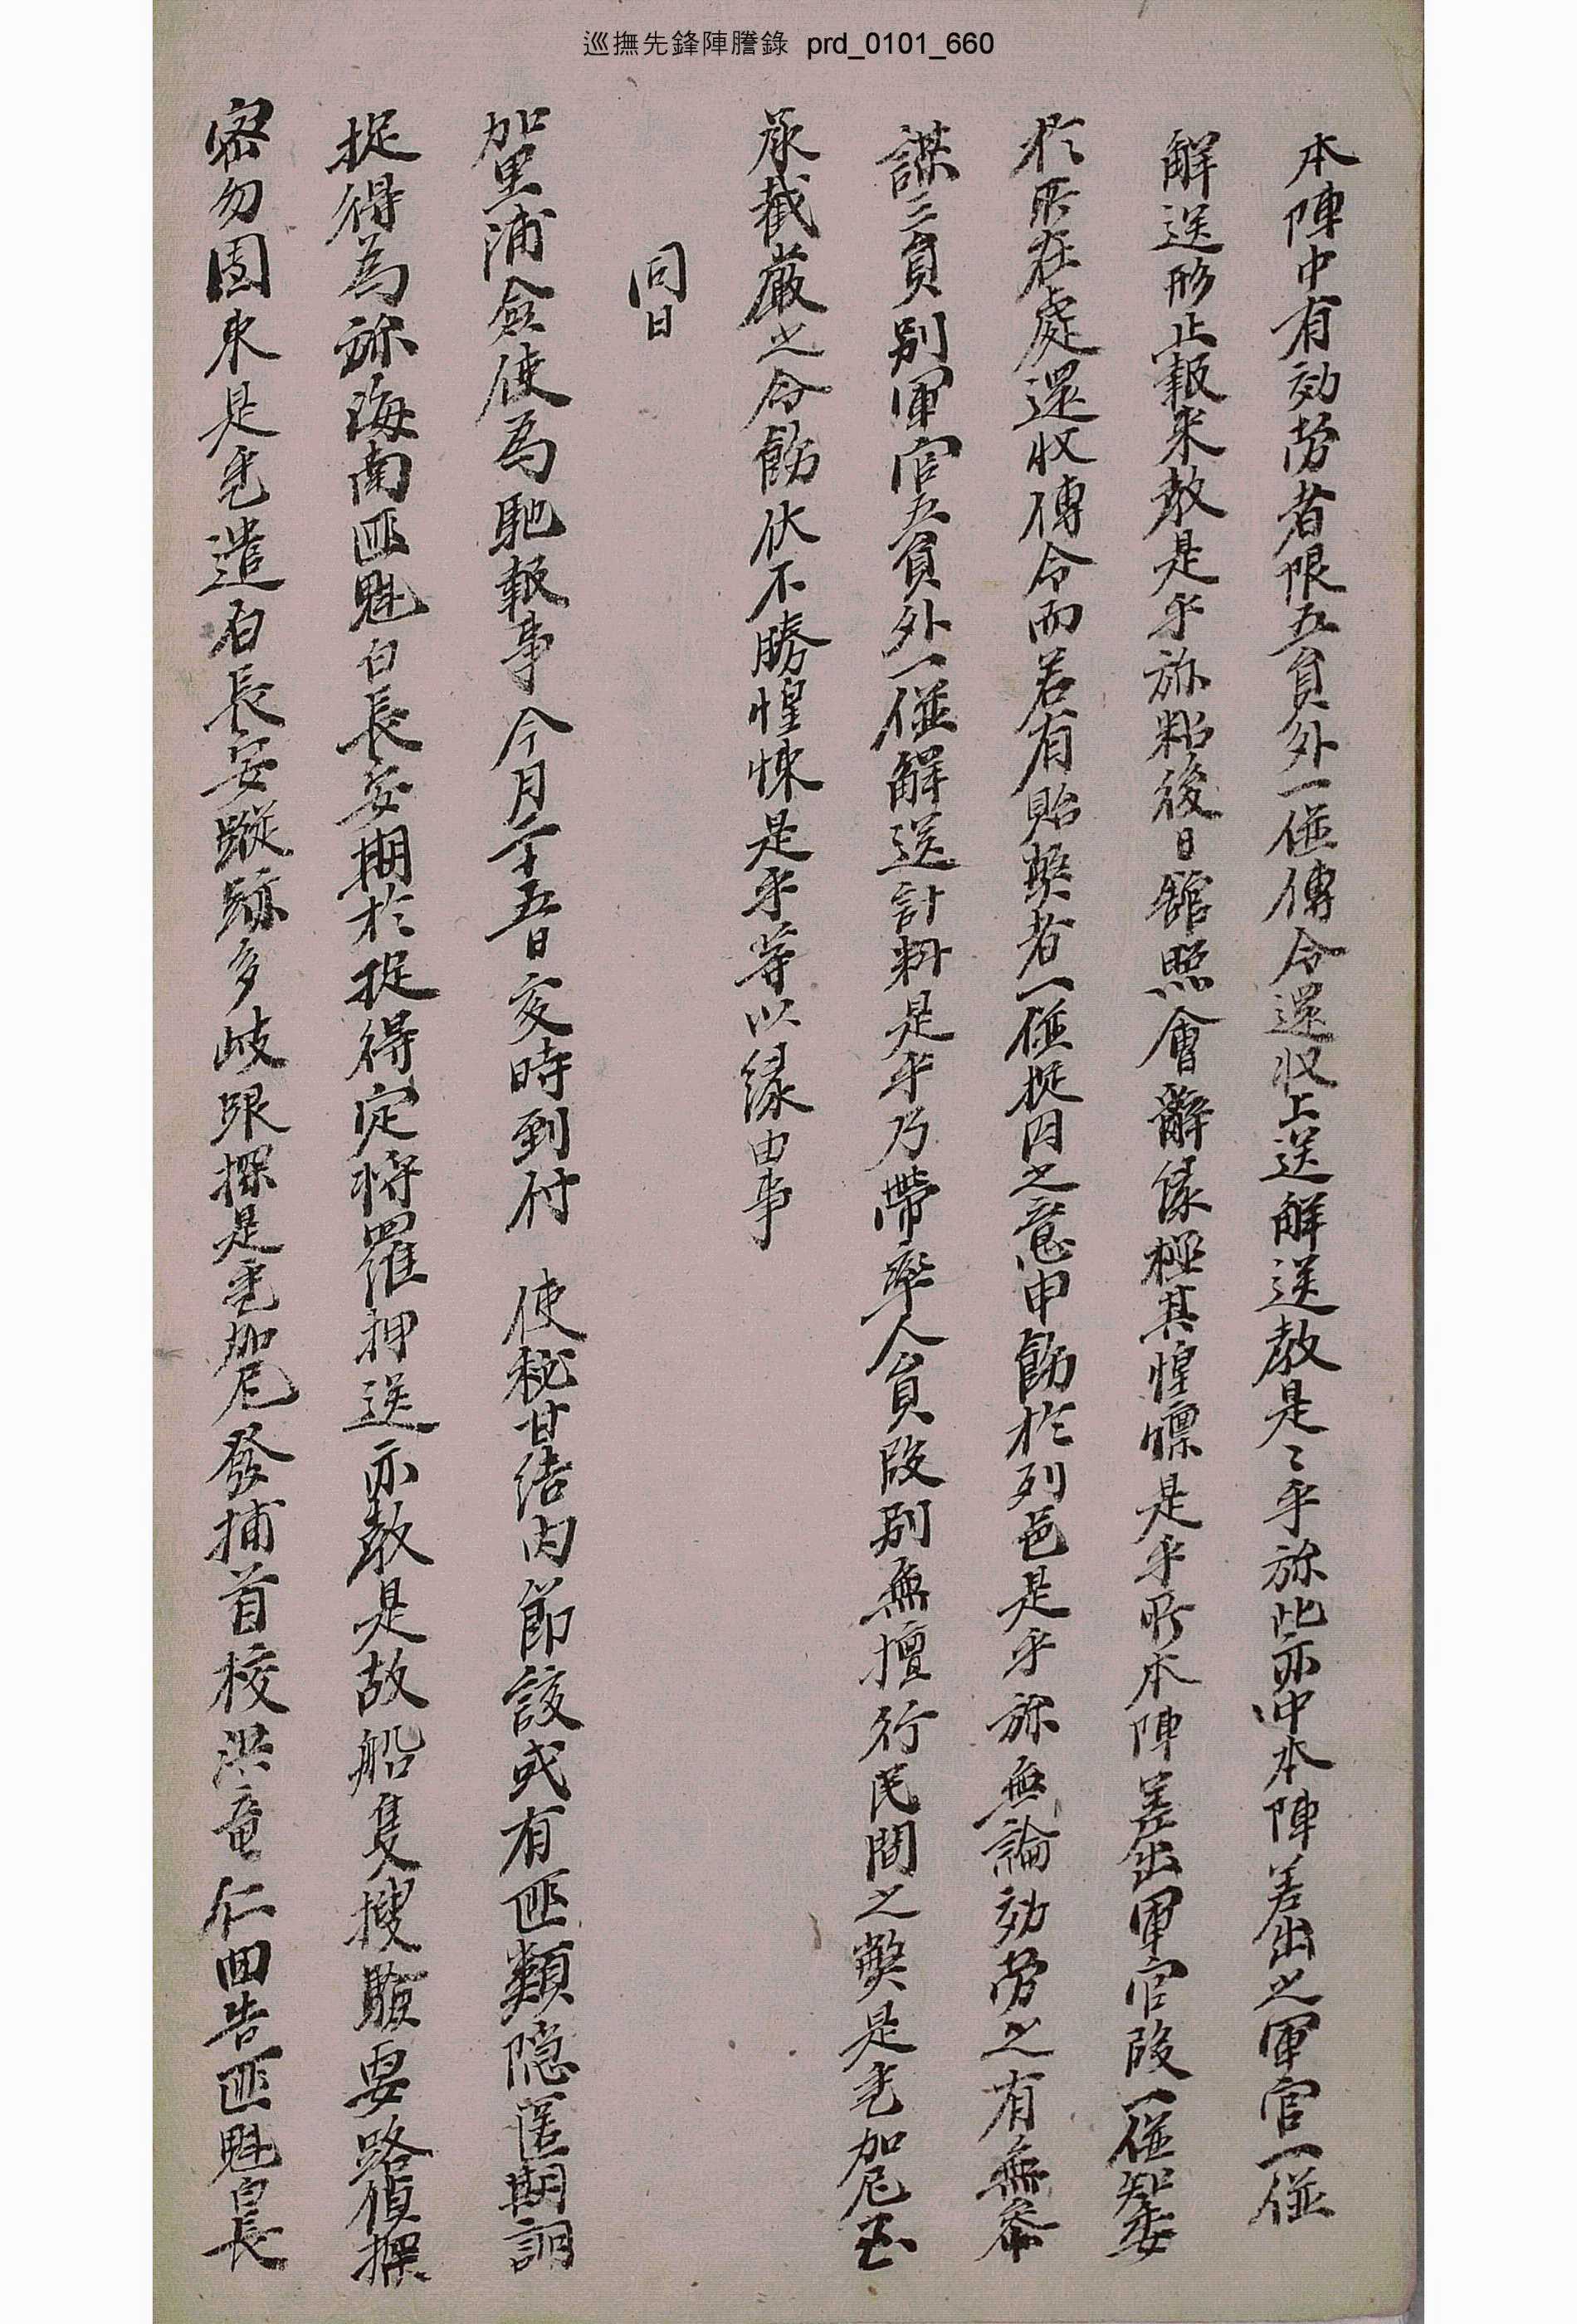 巡撫先鋒陣謄錄 prd_0101_660
本陣中有効劳者限五負外一倂傳令還収上送解送教是〻乎旀此亦中本陣差出之軍官一倂
解送形止報來敎是乎旀粘後日舘照會辭緣極其惶懍是乎所本陣差出軍官段一倂知委
於所在處還收傳令而若有貽弊者一倂捉囚之意申飭於列邑是乎旀無論効劳之有無叅
謀三負別軍官五負外一倂解送計料是乎乃帶率人負段別無擅行民間之弊是乎加尼玉
承截嚴之令飭伏不勝惶悚是乎等以緣由事
同日
加里浦僉使爲馳報事今月二十五日亥時到付 使秘甘結內節該或有匪類隱匿期詗
捉得爲旀海南匪魁白長安期於捉得定將羅押送亦敎是故船隻搜驗要路偵探
密勿團束是乎遣白長安蹤跡多岐跟探是乎加尼發捕首校洪竜仁回告匪魁白長